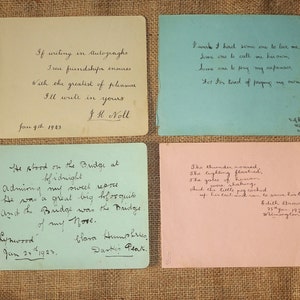 If writing in Autographs
True friendships ensures
With the greatest of pleasure
I'll write in yours
J H Noll
June 9th 1923
I wish I had some one to love me
Some one to call me her own
Some one to pay my expenses
For I'm tired of paying my own
He stood on the Bridge at
Midnight
Admiring my sweet repose
He was a great big Mosquito
And the Bridge was the Bridge
of my Nose.
Clara
Jan 1923.
The thunder roared,
The lighting flashed,
The gates of heaven
were
And the little pig cocked
up his tail and ran to
Edith